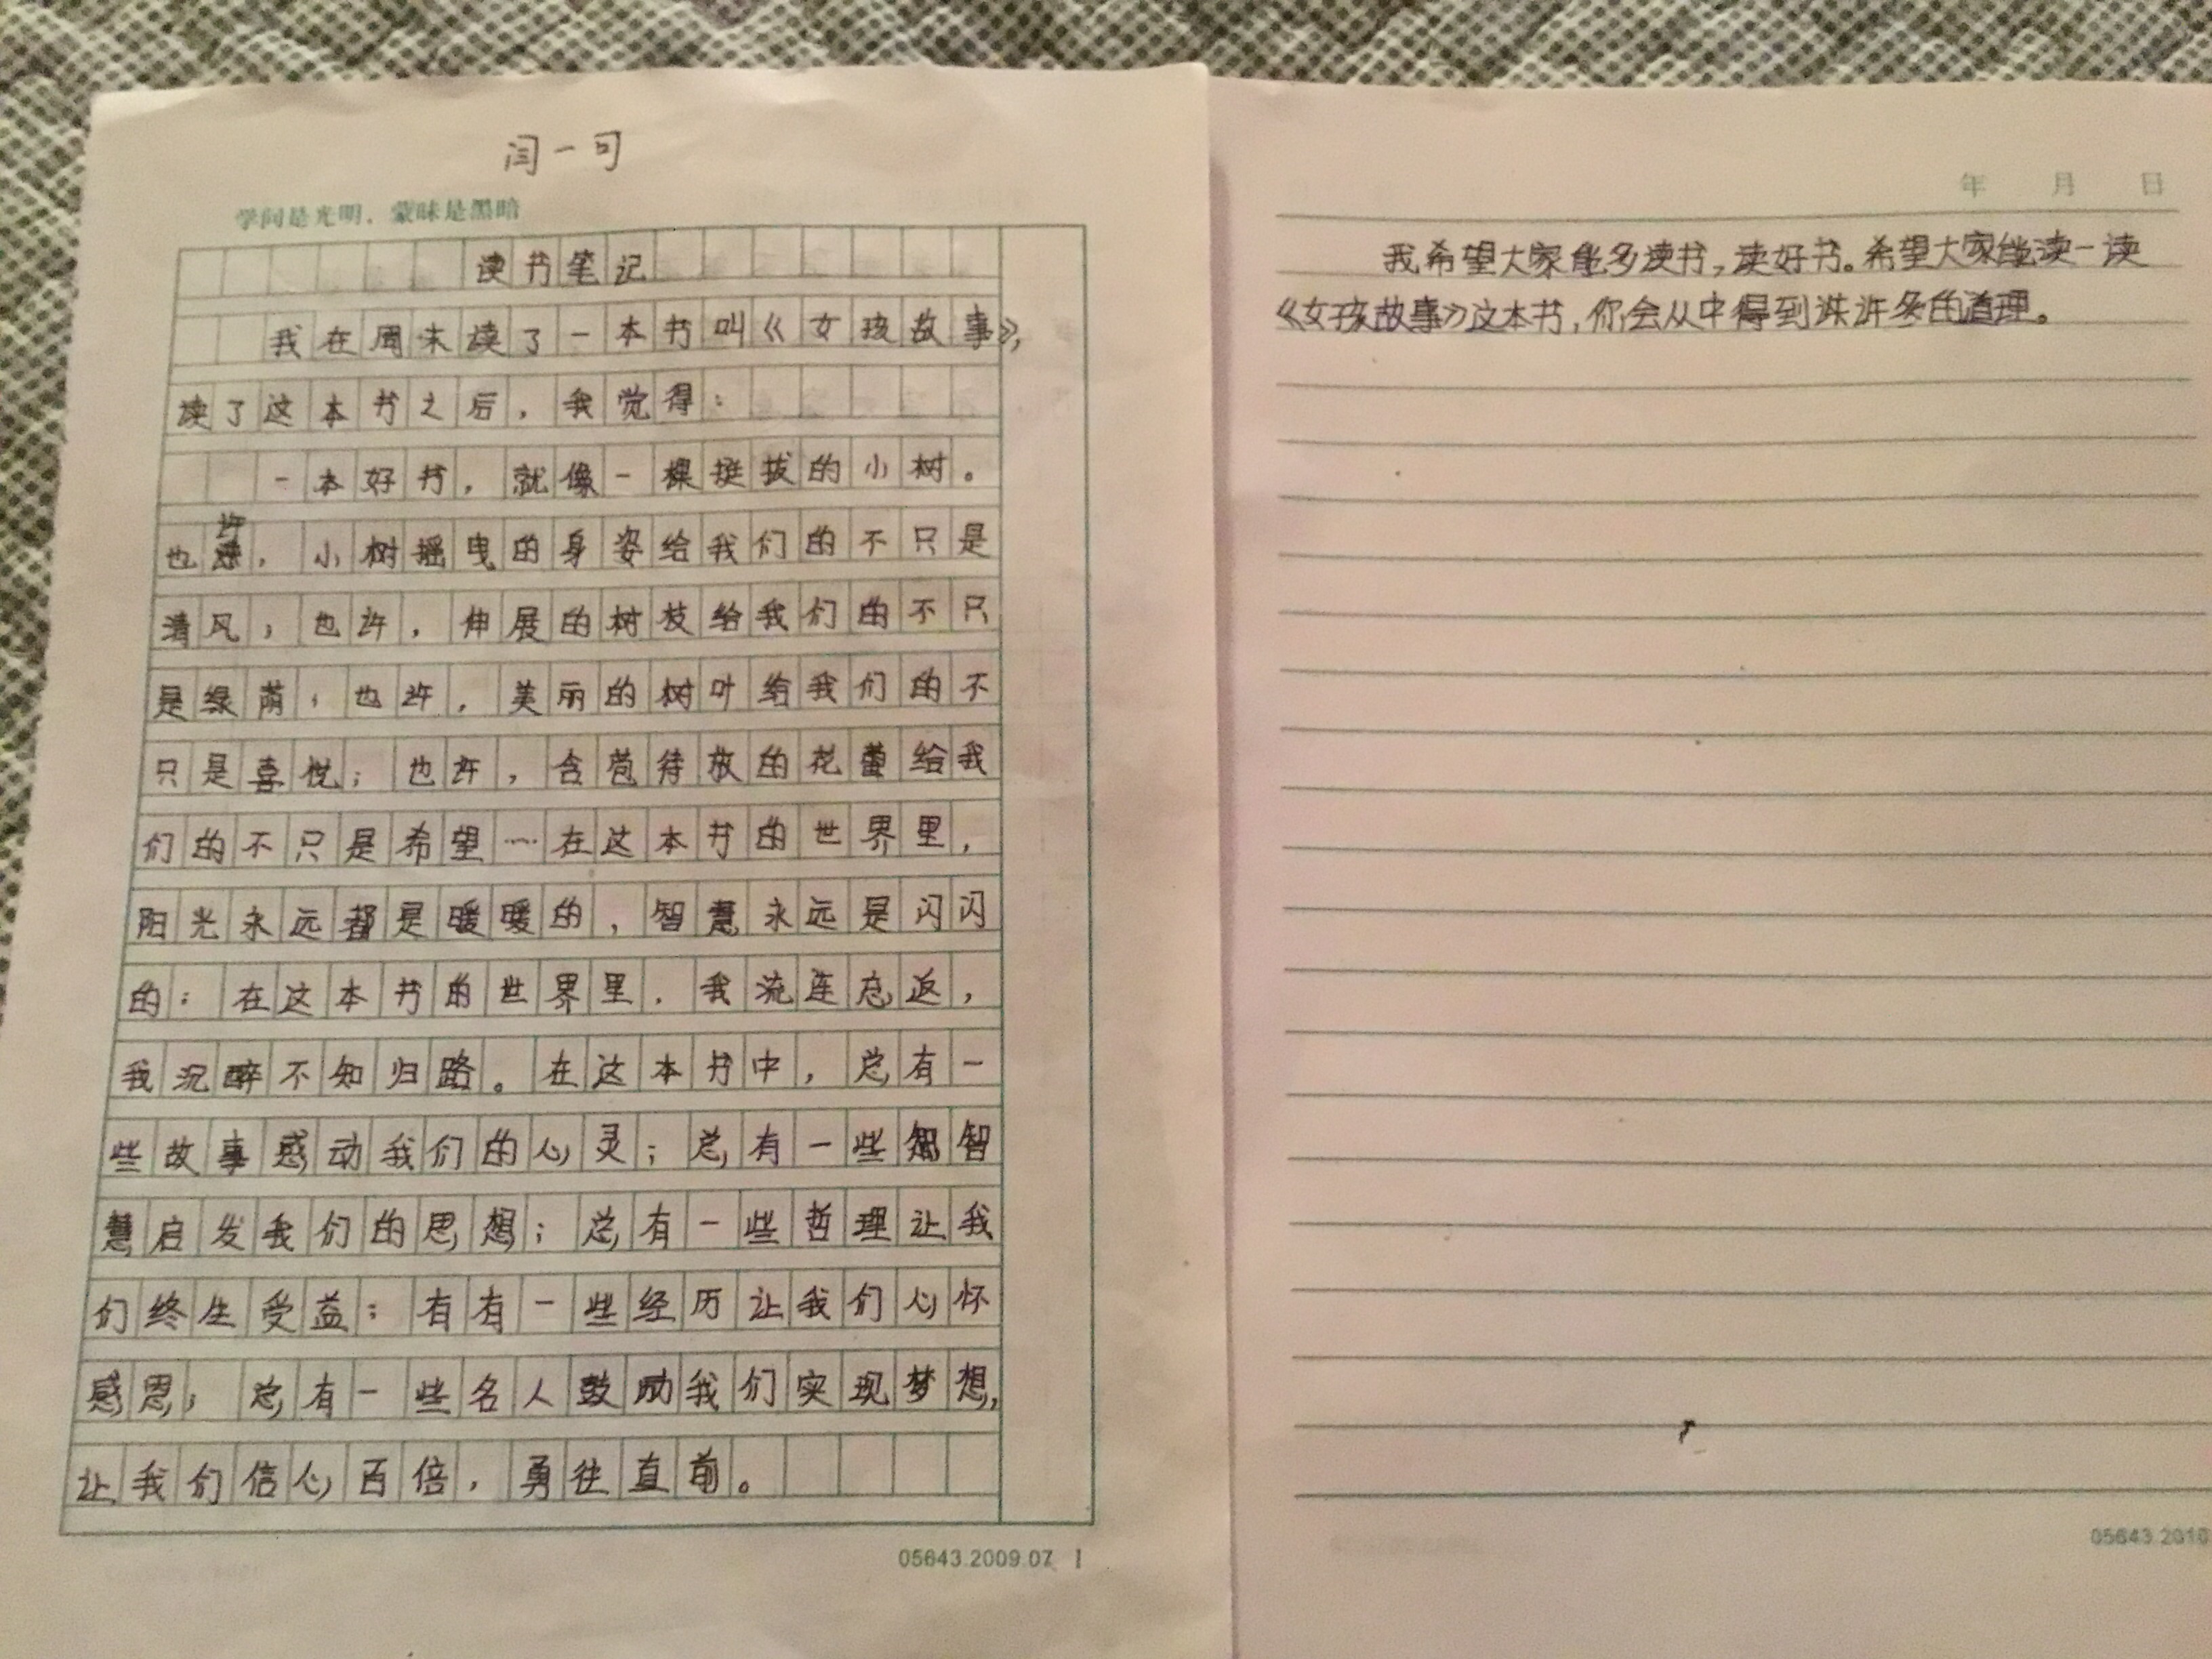 闫一可
学问是光明，蒙昧是黑暗
读书笔记
我在周末读了一本书叫《女孩故事》，
读了这本书之后，我觉得：
一本好书，就像一棵挺拔的小树。
也许，小树摇曳的身姿给我们的不只是
清风；也许，伸展的树枝给我们的不只
是绿荫；也许，美丽的树叶给我们的不
只是喜悦；也许，含苞待放的花蕾给我
们的不只是希望……在这本书的世界里，
阳光永远都是暖暖的，智慧永远是闪闪
的；在这本书的世界里，我流连忘返，
我沉醉不知归路。在这本书中，总有一
些故事感动我们的心灵；总有一些智
慧启发我们的思想；总有一些哲理让我
们终生受益；有有一些经历让我们心怀
感恩；总有一些名人鼓励我们实现梦想，
让我们信心百倍，勇往直前。
05643.2009.07 1
年 月 日
我希望大家能多读书，读好书。希望大家能读一读
《女孩故事》这本书，你会从中得到许多的道理。
05643 2010